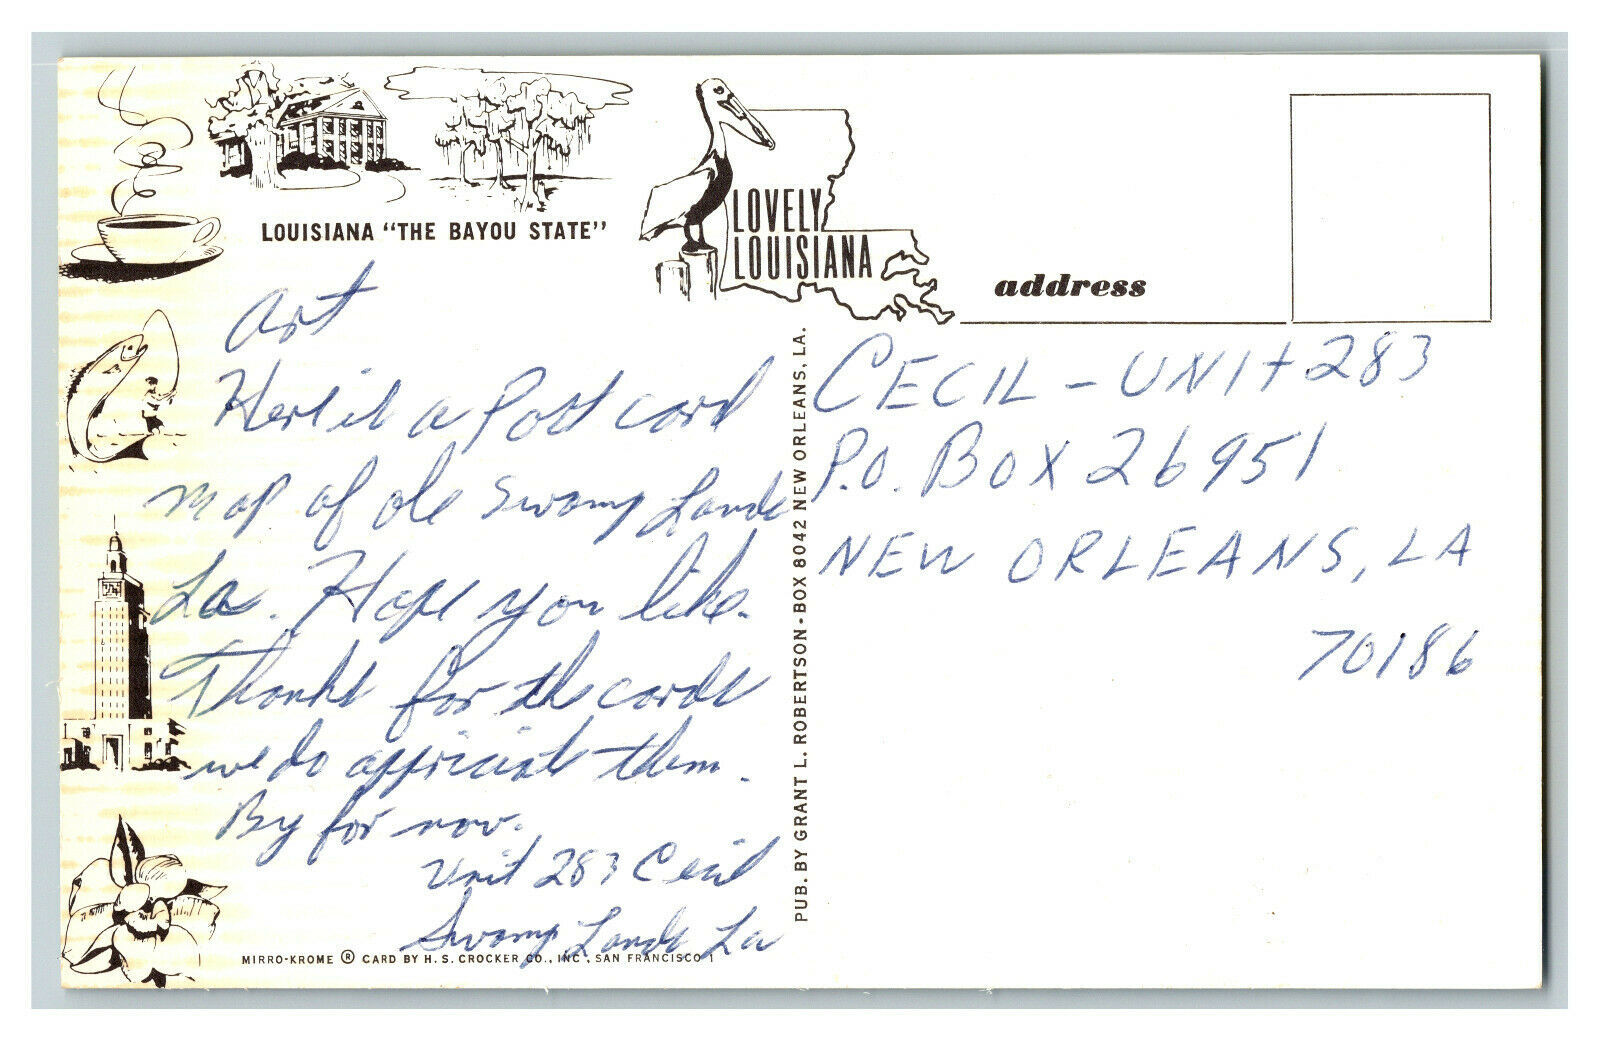 LOUISIANA "THE BAYOU STATE"
LOVELY
LOUISIANA
address
Art
Here is a Post card
map of ole Swamp Lands
La. Hope you like.
Thanks for the cards
we do appriciate them.
By for now.
Unit 283 Cecil
Swamp Lands La
MIRRO-KROME ® CARD BY H. S. CROCKER CO., INC., SAN FRANCISCO 1
PUB. BY GRANT L. ROBERTSON - BOX 8042 NEW ORLEANS, LA.
CECIL - UNIT 283
P.O. BOX 26951
NEW ORLEANS, LA
70186